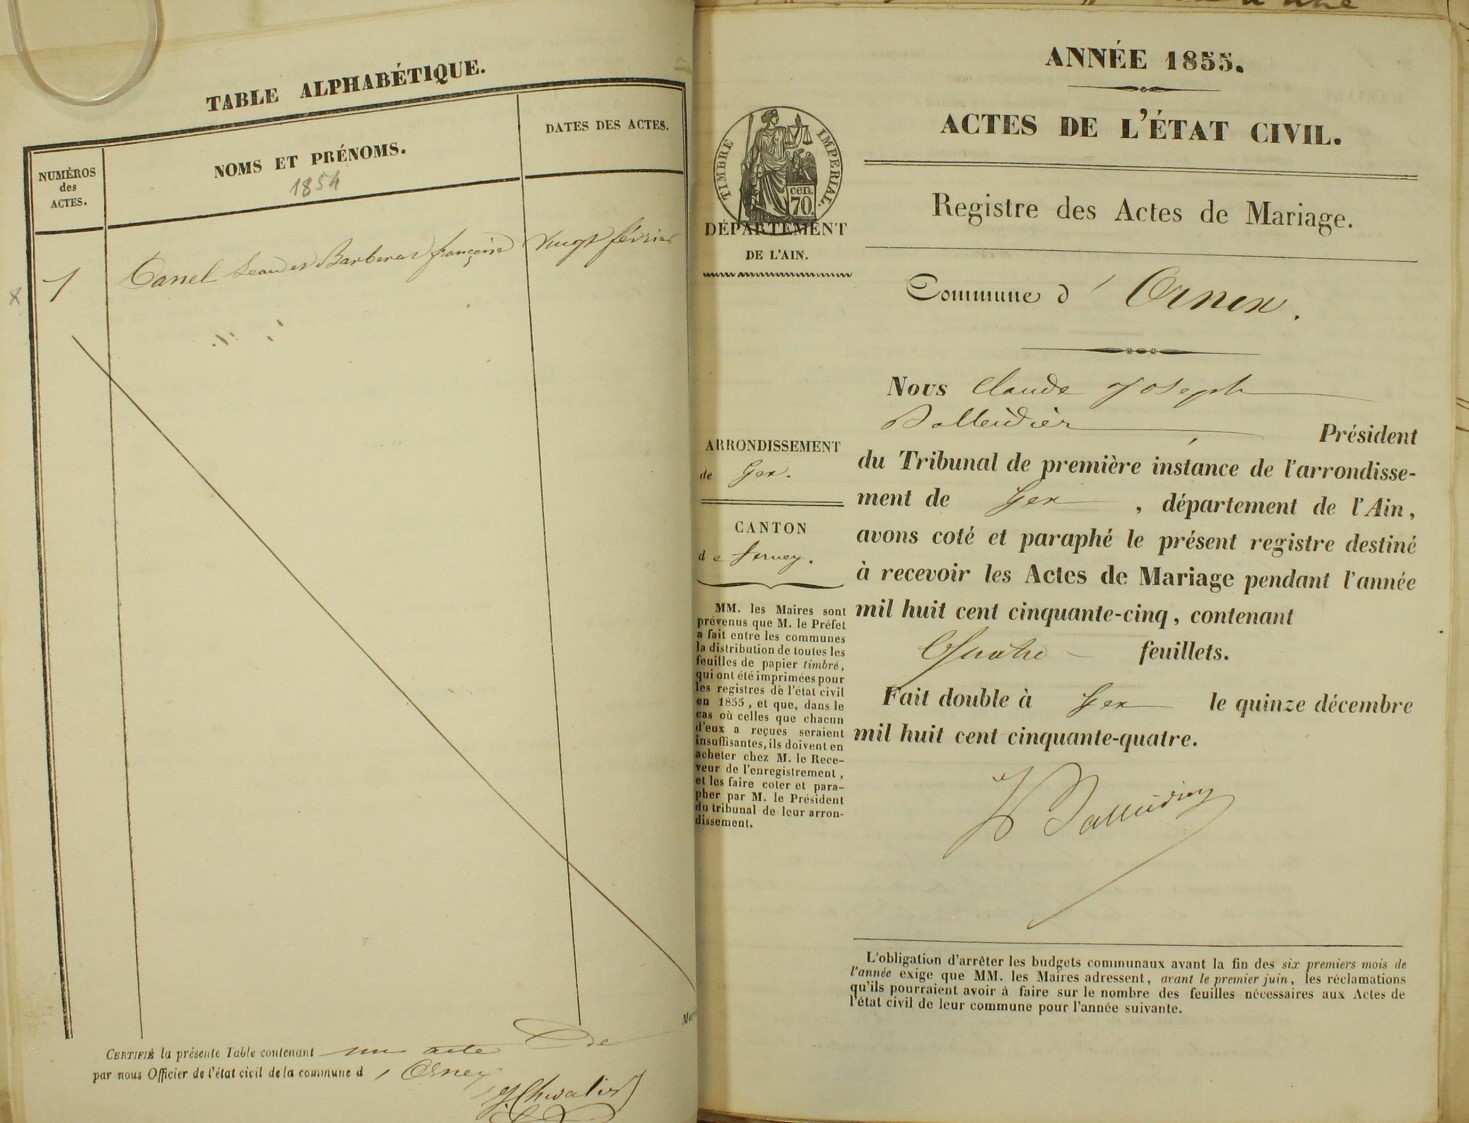 TABLE ALPHABÉTIQUE.
NUMÉROS
des
ACTES.
NOMS ET PRÉNOMS.
1854
DATES DES ACTES.
1
Canel et Barberat françoise
vingt février
CERTIFIÉ la présente Table contenant un acte
par nous Officier de l'état civil de la commune d'Ornex
ANNÉE 1855.
ACTES DE L'ÉTAT CIVIL.
Registre des Actes de Mariage.
TIMBRE IMPERIAL.
cen.
70
DÉPARTEMENT
DE L'AIN.
Commune d'Ornex.
ARRONDISSEMENT
de Gex.
CANTON
de ferney.
MM. les Maires sont
prévenus que M. le Préfet
a fait entre les communes
la distribution de toutes les
feuilles de papier timbré,
qui ont été imprimées pour
les registres de l'état civil
en 1855, et que, dans le
cas où celles que chacun
d'eux a reçues seraient
insuffisantes, ils doivent en
acheter chez M. le Rece-
veur de l'enregistrement,
et les faire coter et para-
pher par M. le Président
du tribunal de leur arron-
dissement.
Nous Claude Joseph
Balleidier Président
du Tribunal de première instance de l'arrondisse-
ment de Gex, département de l'Ain,
avons coté et paraphé le présent registre destiné
à recevoir les Actes de Mariage pendant l'année
mil huit cent cinquante-cinq, contenant
Quatre feuillets.
Fait double à Gex le quinze décembre
mil huit cent cinquante-quatre.
Balleidier
L'obligation d'arrêter les budgets communaux avant la fin des six premiers mois de
l'année exige que MM. les Maires adressent, avant le premier juin, les réclamations
qu'ils pourraient avoir à faire sur le nombre des feuilles nécessaires aux Actes de
l'état civil de leur commune pour l'année suivante.